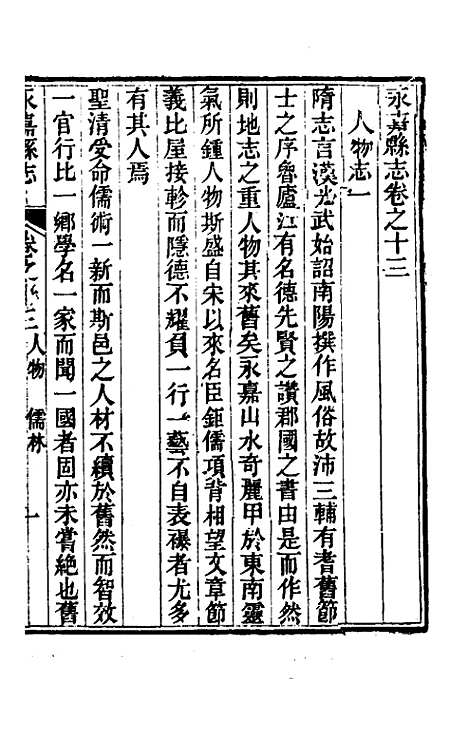 永嘉縣志卷之十三
人物志一
隋志言漢光武始詔南陽撰作風俗故沛三輔有耆舊節
士之序魯廬江有名德先賢之讚郡國之書由是而作然
則地志之重人物其來舊矣永嘉山水奇麗甲於東南靈
氣所鍾人物斯盛自宋以來名臣鉅儒項背相望文章節
義比屋接軫而隱德不耀負一行一藝不自表襮者尤多
有其人焉
聖清受命儒術一新而斯邑之人材不續於舊然而智效
一官行比一鄉學名一家而聞一國者固亦未嘗絶也舊
永嘉縣志 卷之十三人物 儒林 一